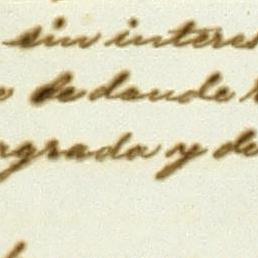 sin interes
de donde
agrado y de